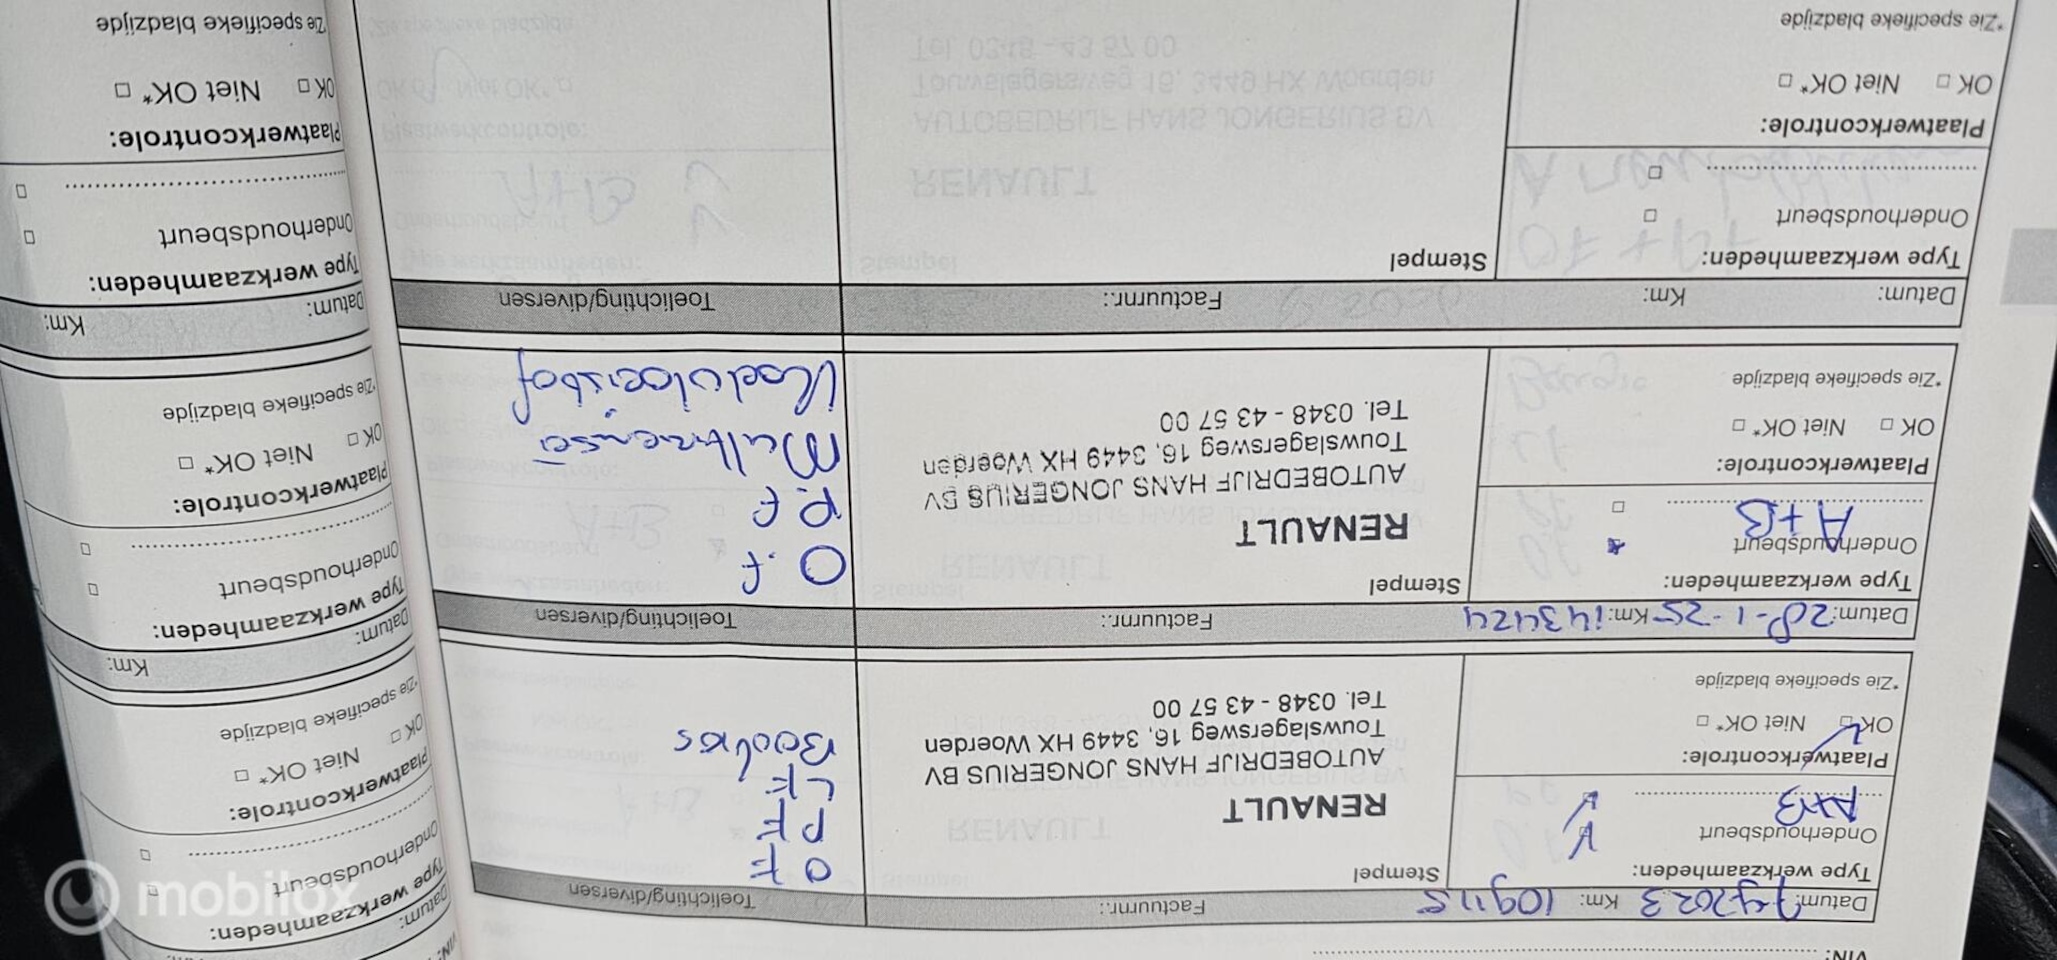 VIN:
Datum: 7-9-2023 Km: 109115
Factuurnr.:
Toelichting/diversen
Type werkzaamheden:
Onderhoudsbeurt
A+B
Plaatwerkcontrole:
OK □ Niet OK* □
*Zie specifieke bladzijde
Stempel
RENAULT
AUTOBEDRIJF HANS JONGERIUS BV
Touwslagersweg 16, 3449 HX Woerden
Tel. 0348 - 43 57 00
OF
PF
LF
Datum: 28-1-25 Km: 143424
Factuurnr.:
Toelichting/diversen
Type werkzaamheden:
Onderhoudsbeurt
A+B
Plaatwerkcontrole:
OK □ Niet OK* □
*Zie specifieke bladzijde
Stempel
RENAULT
AUTOBEDRIJF HANS JONGERIUS BV
Touwslagersweg 16, 3449 HX Woerden
Tel. 0348 - 43 57 00
O.f
P.f
Multiriemset
Koelvloeistof
Datum: Km:
Factuurnr.:
Toelichting/diversen
Type werkzaamheden:
Onderhoudsbeurt □
□
Plaatwerkcontrole:
OK □ Niet OK* □
*Zie specifieke bladzijde
Stempel
VIN:
Datum:
Type werkzaamheden:
Onderhoudsbeurt □
□
Plaatwerkcontrole:
OK □ Niet OK* □
*Zie specifieke bladzijde
Datum: Km:
Type werkzaamheden:
Onderhoudsbeurt □
□
Plaatwerkcontrole:
OK □ Niet OK* □
*Zie specifieke bladzijde
Datum: Km:
Type werkzaamheden:
Onderhoudsbeurt □
□
Plaatwerkcontrole:
OK □ Niet OK* □
*Zie specifieke bladzijde
mobilox